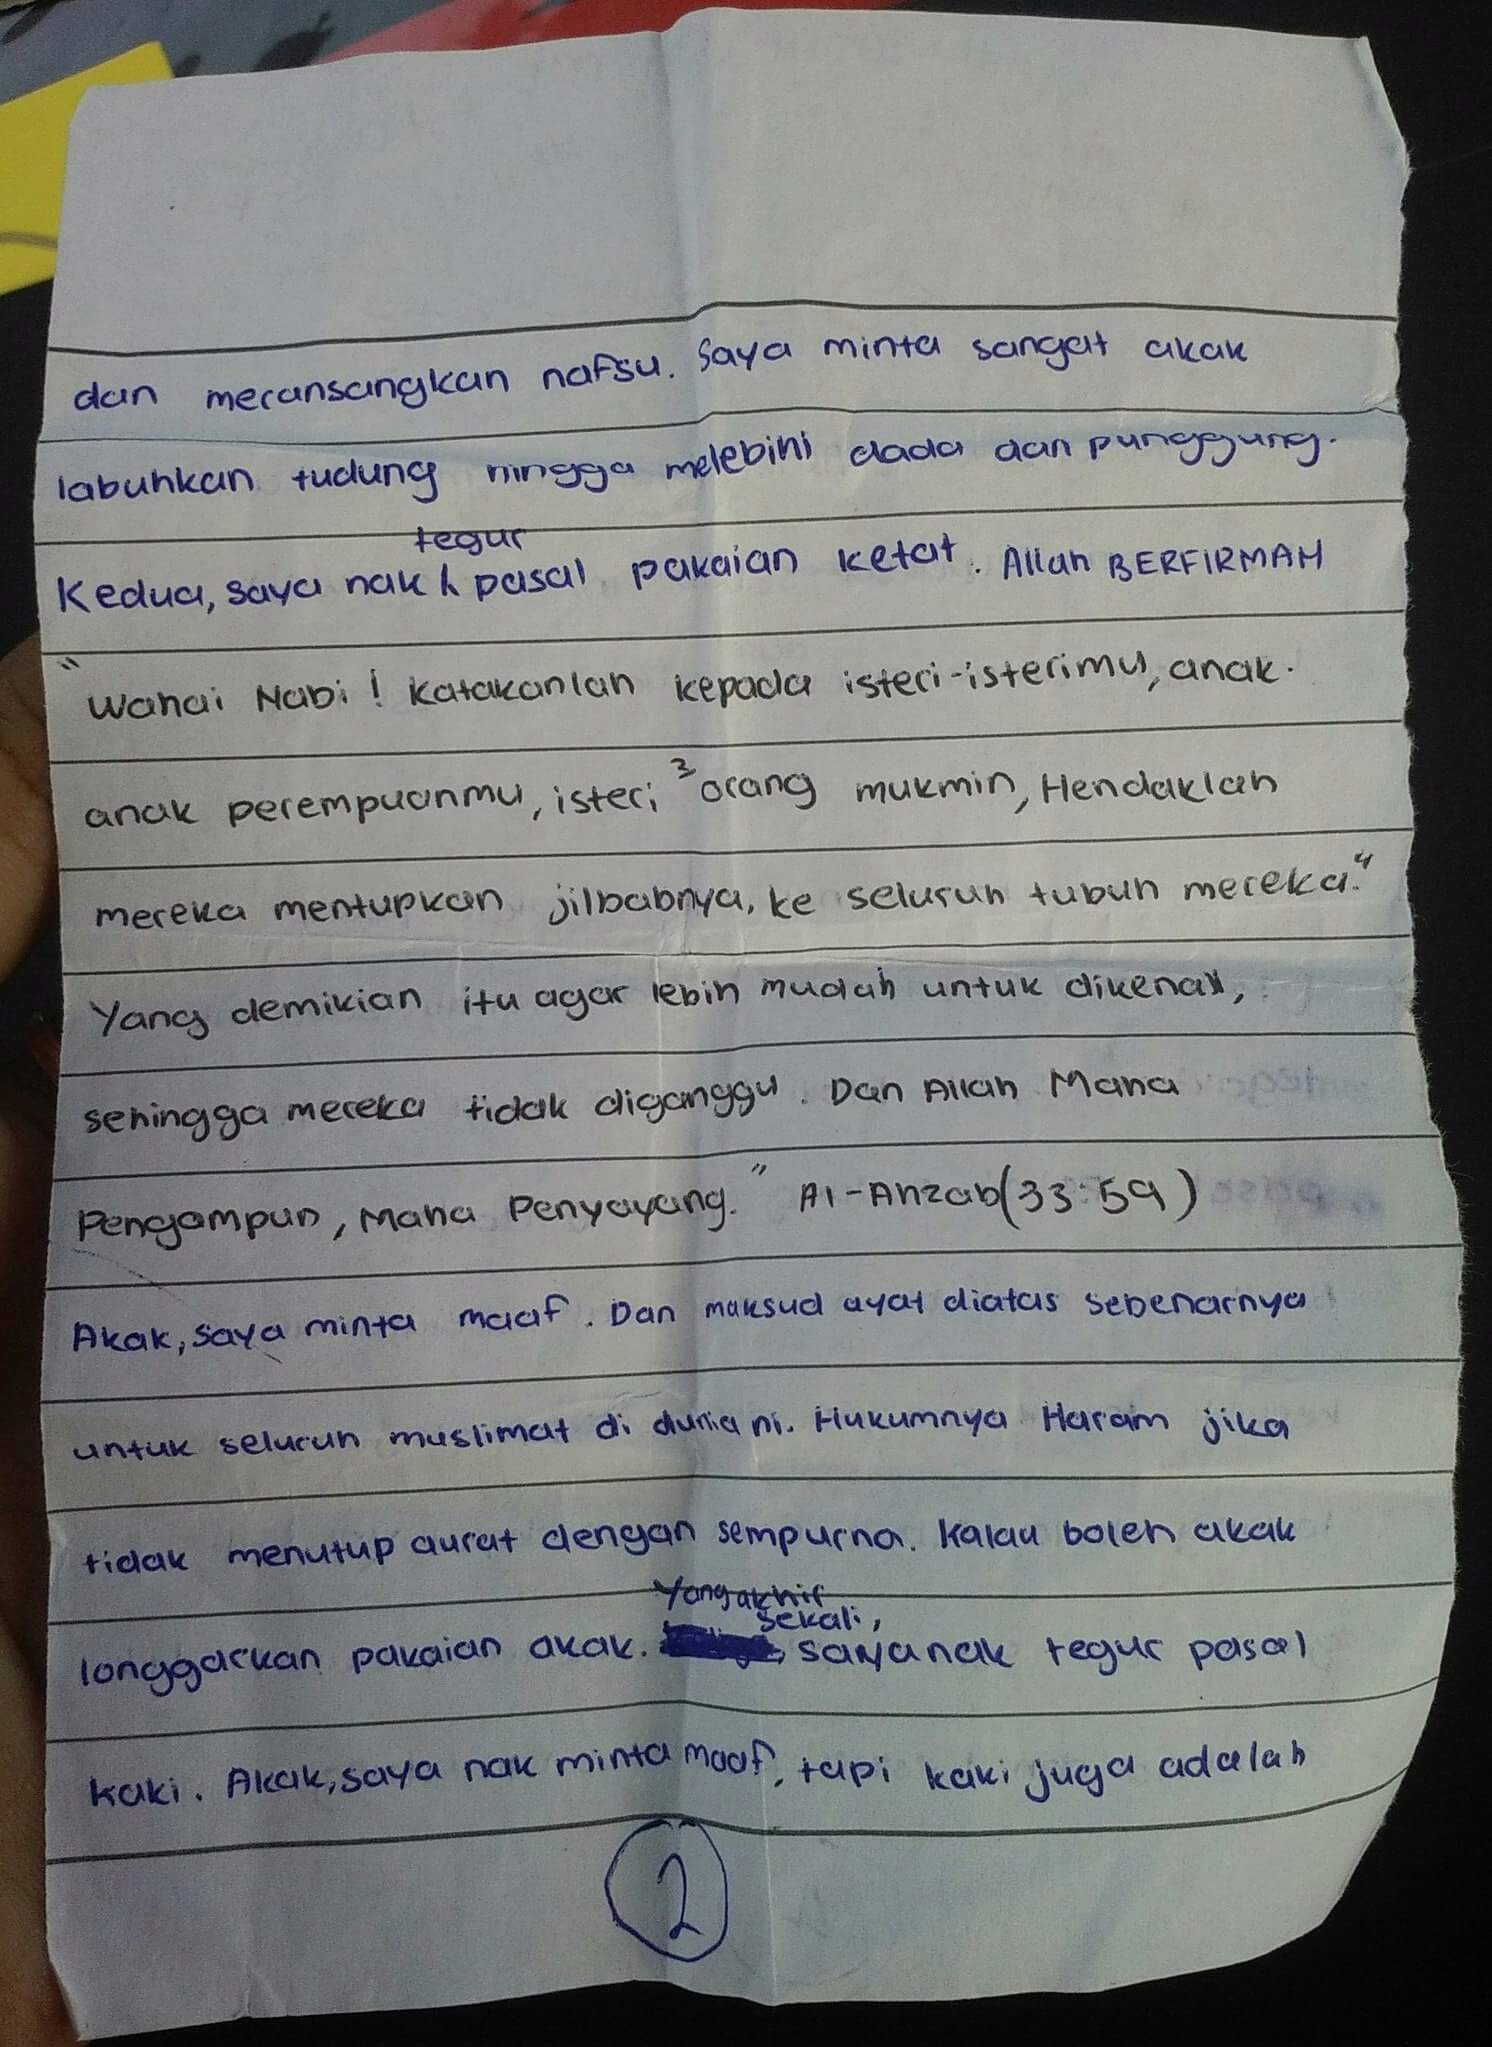 dan meransangkan nafsu. Saya minta sangat akak
labuhkan tudung hingga melebihi dada dan punggung.
tegur
Kedua, saya nak ʎ pasal pakaian ketat. Allah BERFIRMAH
"Wahai Nabi! Katakanlah kepada isteri-isterimu, anak-
anak perempuanmu, isteri ³ orang mukmin, Hendaklah
mereka mentupkan jilbabnya, ke seluruh tubuh mereka."
Yang demikian itu agar lebih mudah untuk dikenali,
sehingga mereka tidak diganggu. Dan Allah Maha
Pengampun, Maha Penyayang." Al-Ahzab (33:59)
Akak, saya minta maaf. Dan maksud ayat diatas sebenarnya
untuk seluruh muslimat di dunia ni. Hukumnya Haram jika
tidak menutup aurat dengan sempurna. Kalau boleh akak
Yang akhir
sekali,
longgarkan pakaian akak. saya nak tegur pasal
kaki. Akak, saya nak minta maaf, tapi kaki juga adalah
2